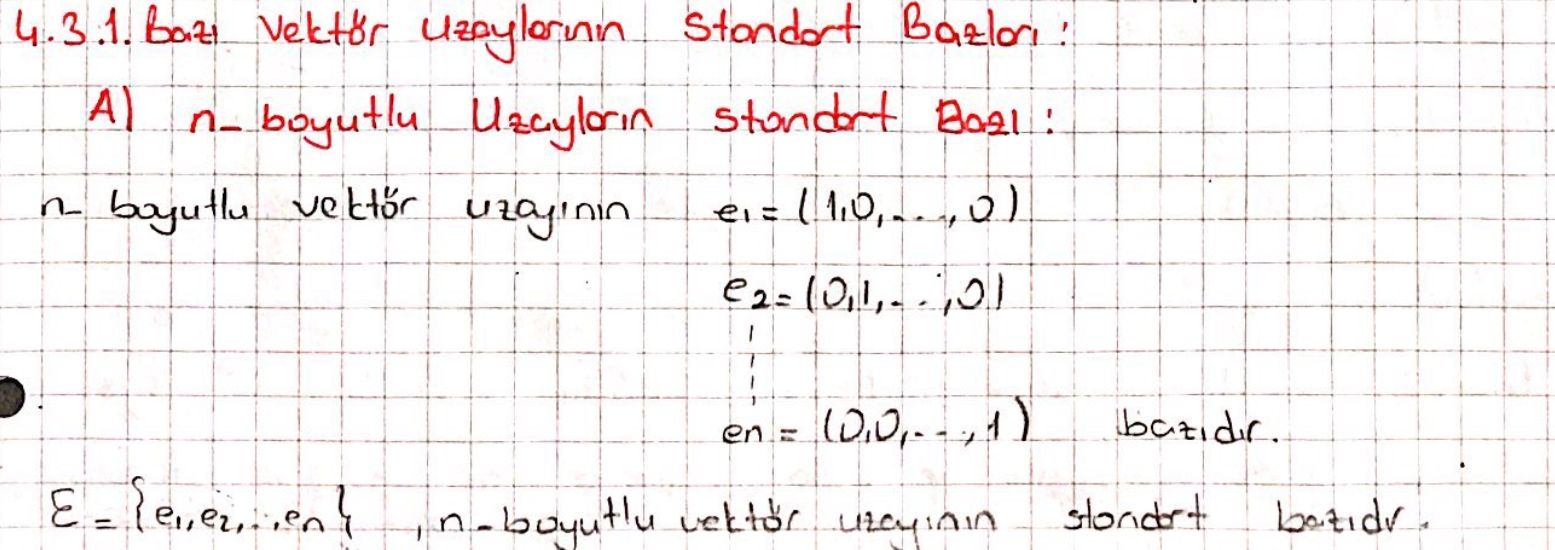 4.3.1. Bazı Vektör Uzaylarının Standart Bazları:
A) n-boyutlu Uzayların standart Bazı:
n-boyutlu vektör uzayının e₁ = (1,0,...,0)
e₂ = (0,1,...,0)
en = (0,0,...,1) bazıdır.
E = {e₁,e₂,...,en}, n-boyutlu vektör uzayının standart bazıdır.